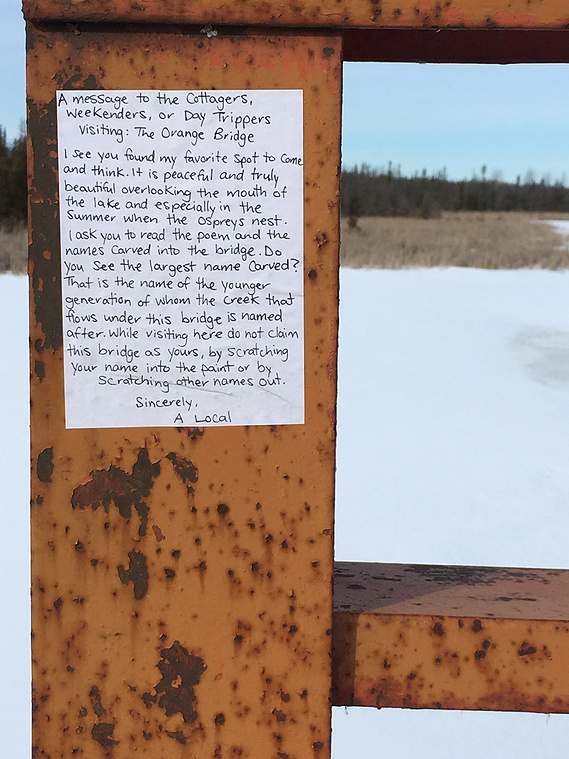 A message to the Cottagers,
Weekenders, or Day Trippers
Visiting: The Orange Bridge
I see you found my favorite spot to come
and think. It is peaceful and truly
beautiful overlooking the mouth of
the lake and especially in the
Summer when the Ospreys nest.
I ask you to read the poem and the
names carved into the bridge. Do
you see the largest name carved?
That is the name of the younger
generation of whom the creek that
flows under this bridge is named
after. While visiting here do not claim
this bridge as yours, by scratching
your name into the paint or by
scratching other names out.
Sincerely,
A Local